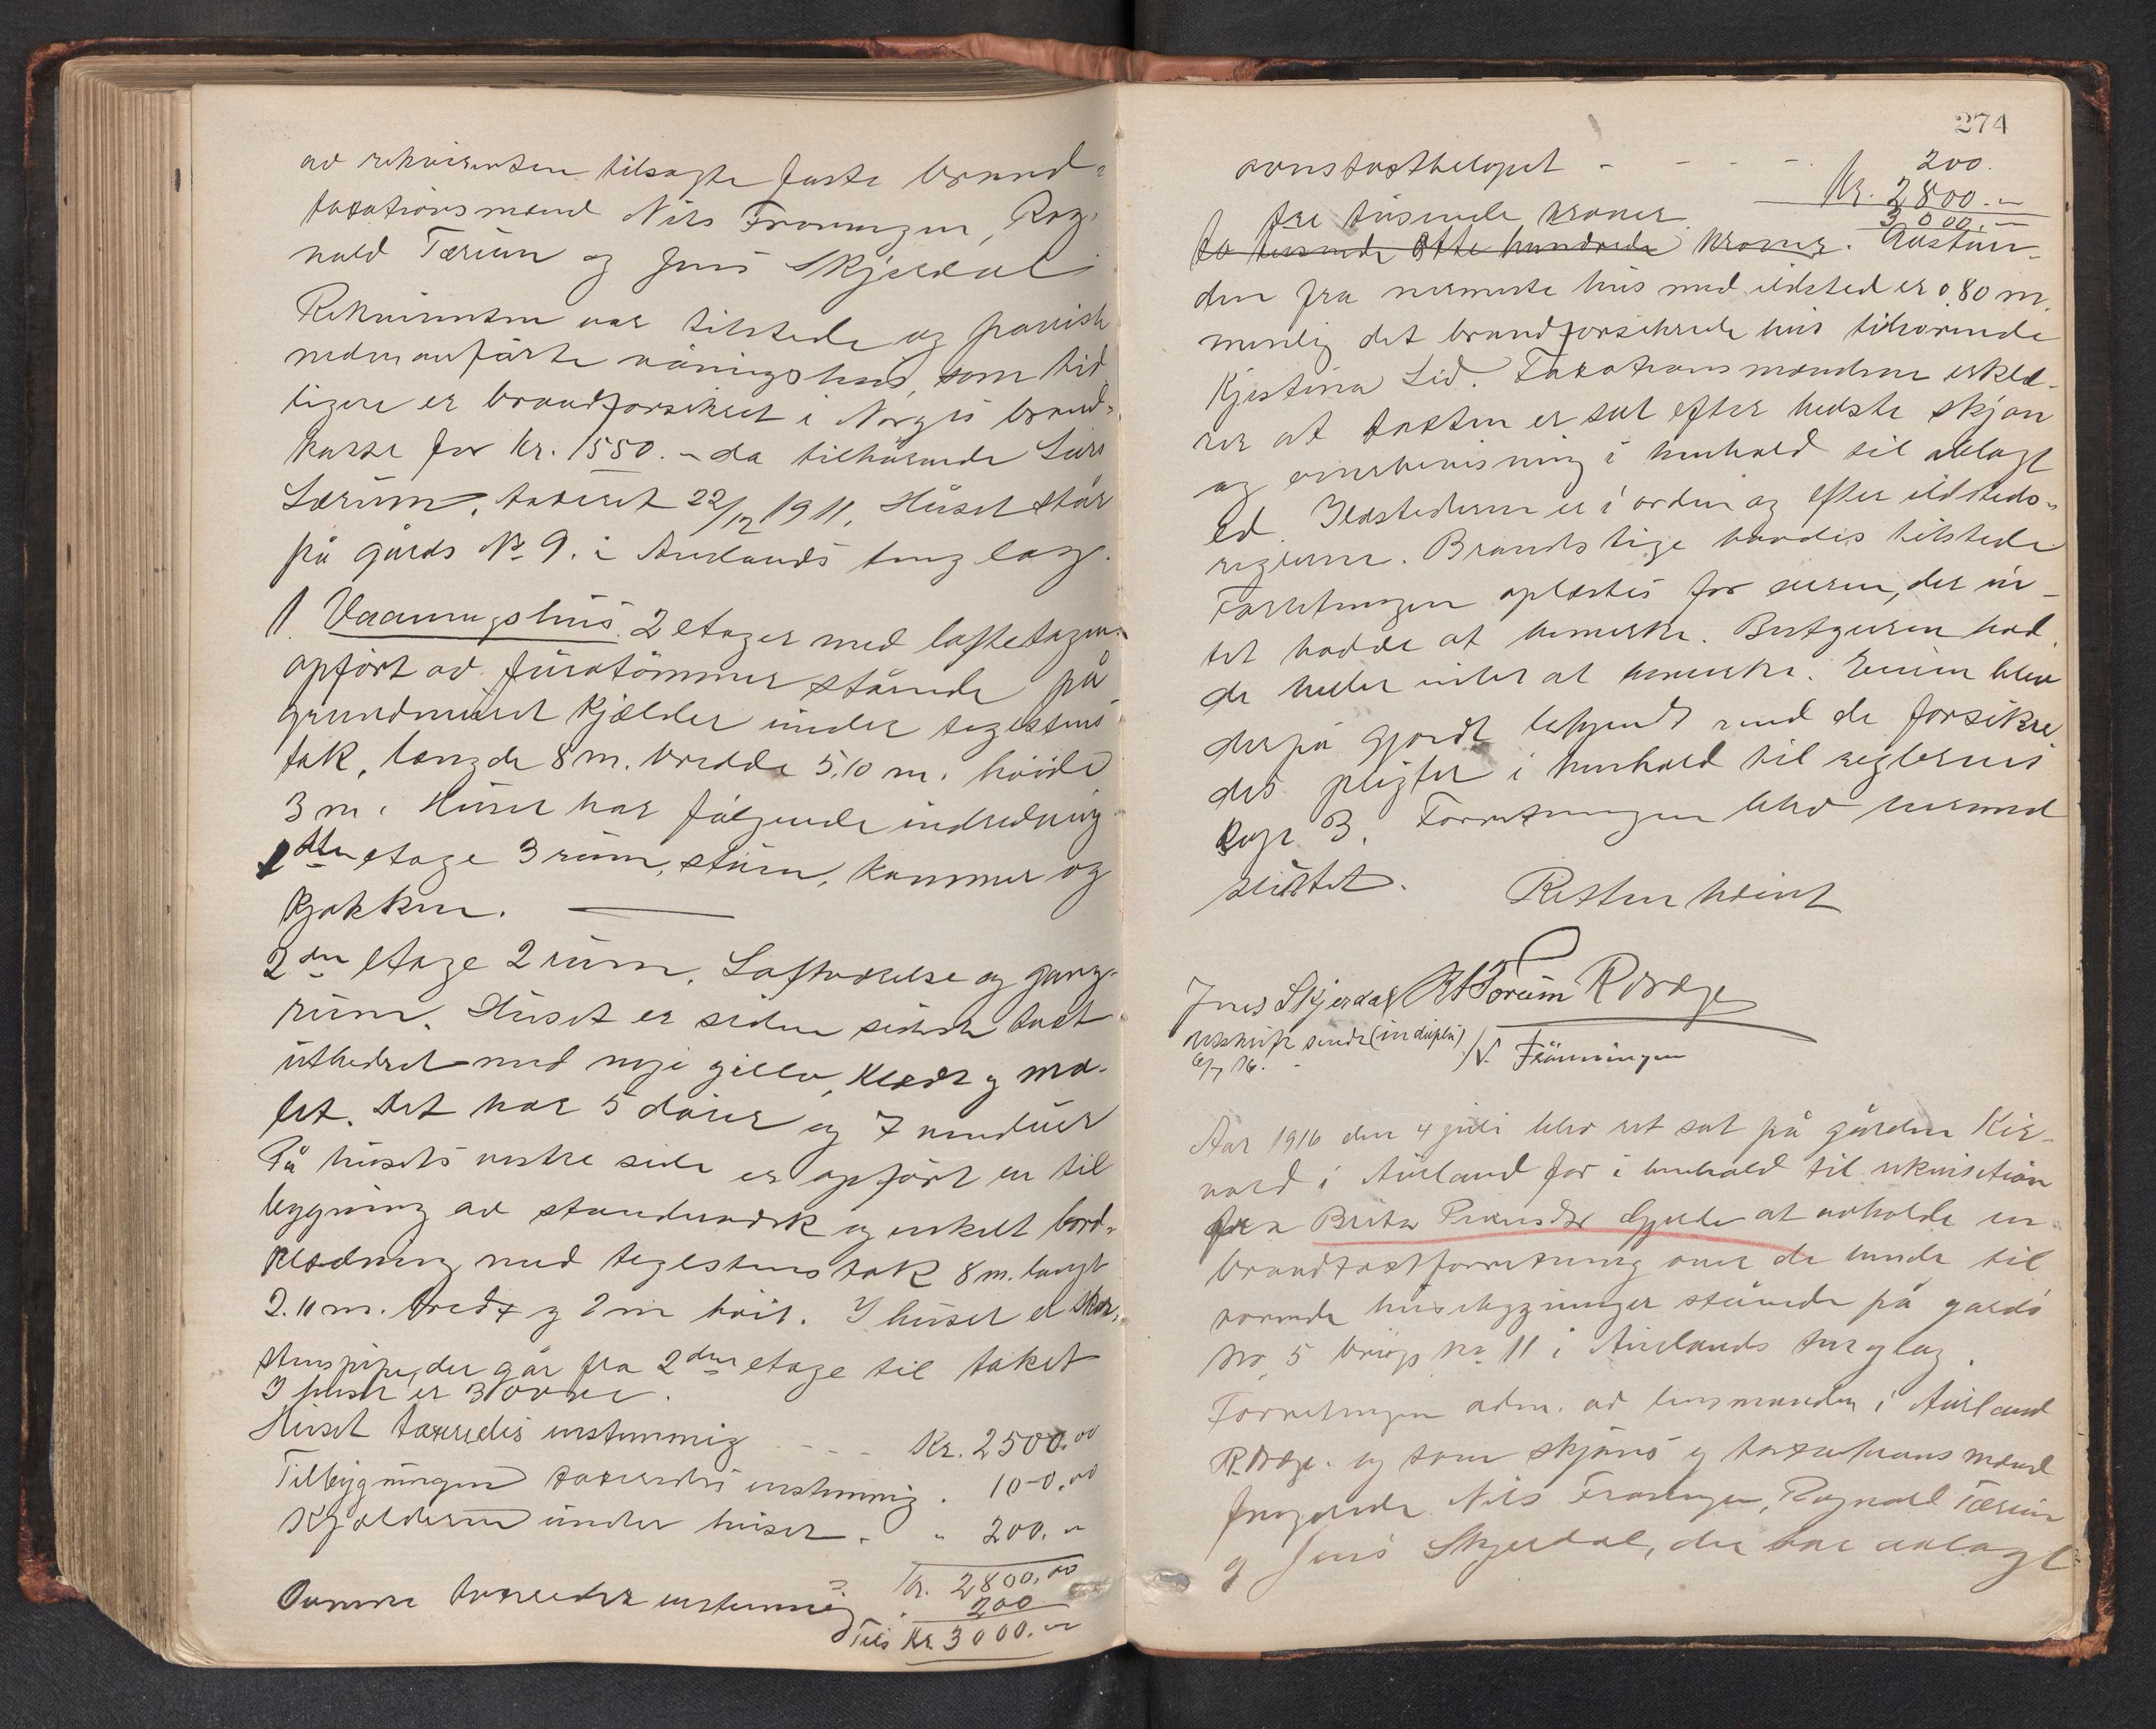 av rekvirenten tilsagte faste brand-
taxationsmænd Nils Fronningen, Rag-
nald Tærum og Jens Skjerdal
Rekvirenten var tilstede og paaviste
nedenanførte våningshus, som tid
ligere er brandforsikret i Norges brand-
kasse for kr. 1550.- da tilhørende Lars
Lærum, taxeret 22/12 1911. Huset står
på gårds No 9. i Aurlands tinglag.
1. Vaaningshus. 2 etager med loftetagen
opført av furutømmer stående på
grundmuret kjælder under teglstens
tak, længde 8 m. bredde 5.10 m. høide
3 m. Huset har følgende indredning
1ste etage 3 rum, stuen, kammer og
kjøkken.
2den etage 2 rum. Loftværelse og gang-
rum. Huset er siden sidste takst
utbedret med nye gulv, klædt og ma-
let. Det har 5 dører og 7 vinduer
På husets vestre side er opført en til
bygning av standverk og enkelt bord-
klædning med teglstens tak 8 m. langt
2.10 m. bredt og 2 m høit. I huset er skor-
stenspipe, der går fra 2den etage til taket
I huset er 3 ovne.
Huset taxeredes enstemmig - - - - Kr. 2500.00
Tilbygningen taxeredes enstemmig . 100.00
Kjælderen under huset - " 200.-
Kr. 2800.00
Ovnene taxeredes enstemmig 200
Tils Kr. 3000.-
274
ovnstaxtbeløpet - - - - - 200.
Kr. 2800.-
3000.-
tre tusende kroner
to tusende otte hundrede kroner. Avstan-
den fra nærmeste hus med ildsted er 0.80 m.
nemlig det brandforsikrede hus tilhørende
Kjestina Lid. Taxationsmændene erklæ-
rer at taxten er sat efter bedste skjøn
og overbevisning i henhold til avlagt
ed. Ildstederne er i orden og efter ildsteds-
reglerne. Brandstige havdes tilstede
Forretningen oplæstes for eieren, der in-
tet hadde at bemerke. Bestyreren had
de heller intet at bemerke. Eieren blev
derpå gjordt bekjendt med de forsikre
des pligter i henhold til reglernes
kap. 3. Forretningen blev hermed
sluttet.
Retten hævet
Jens Skjerdal RTærum
Utskrift sendt (in duplo)
6/7 16.
N. Frönningen
Aar 1916 den 4 juli blev ret sat på gården
i Aurland for i henhold til rekvisition
fra Brita at avholde en
brandtaxtforretning over de hende til
hørende husebygninger stående på gårds
No 5 brugs no 11 i Aurlands tinglag.
Forretningen adm. av lensmanden i Aurland
og som skjøns og taxationsmænd
fungerede Nils Fronningen, Ragnald Tærum
og Jens Skjerdal, der har avlagt